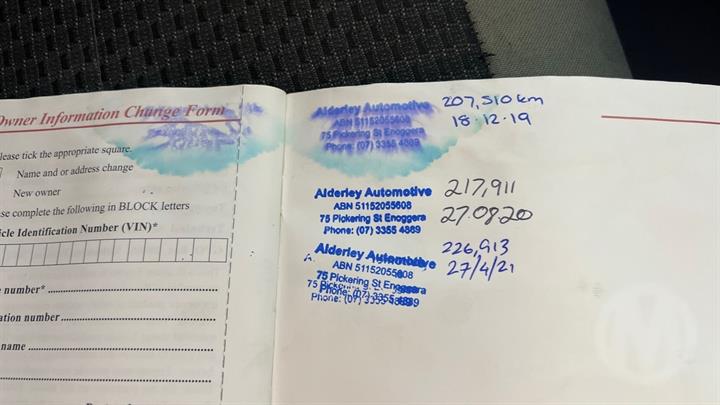 Owner Information Change Form
ease tick the appropriate square.
Name and or address change
New owner
se complete the following in BLOCK letters
icle Identification Number (VIN)*
number*
ation number
name
Alderley Automotive
ABN 51152055608
75 Pickering St Enoggera
Phone: (07) 3355 4889
207,510 km
18.12.19
Alderley Automotive
ABN 51152055608
75 Pickering St Enoggera
Phone: (07) 3355 4889
217,911
27.08.20
Alderley Automotive
ABN 51152055608
75 Pickering St Enoggera
Phone: (07) 3355 4889
226,913
27/4/21
M